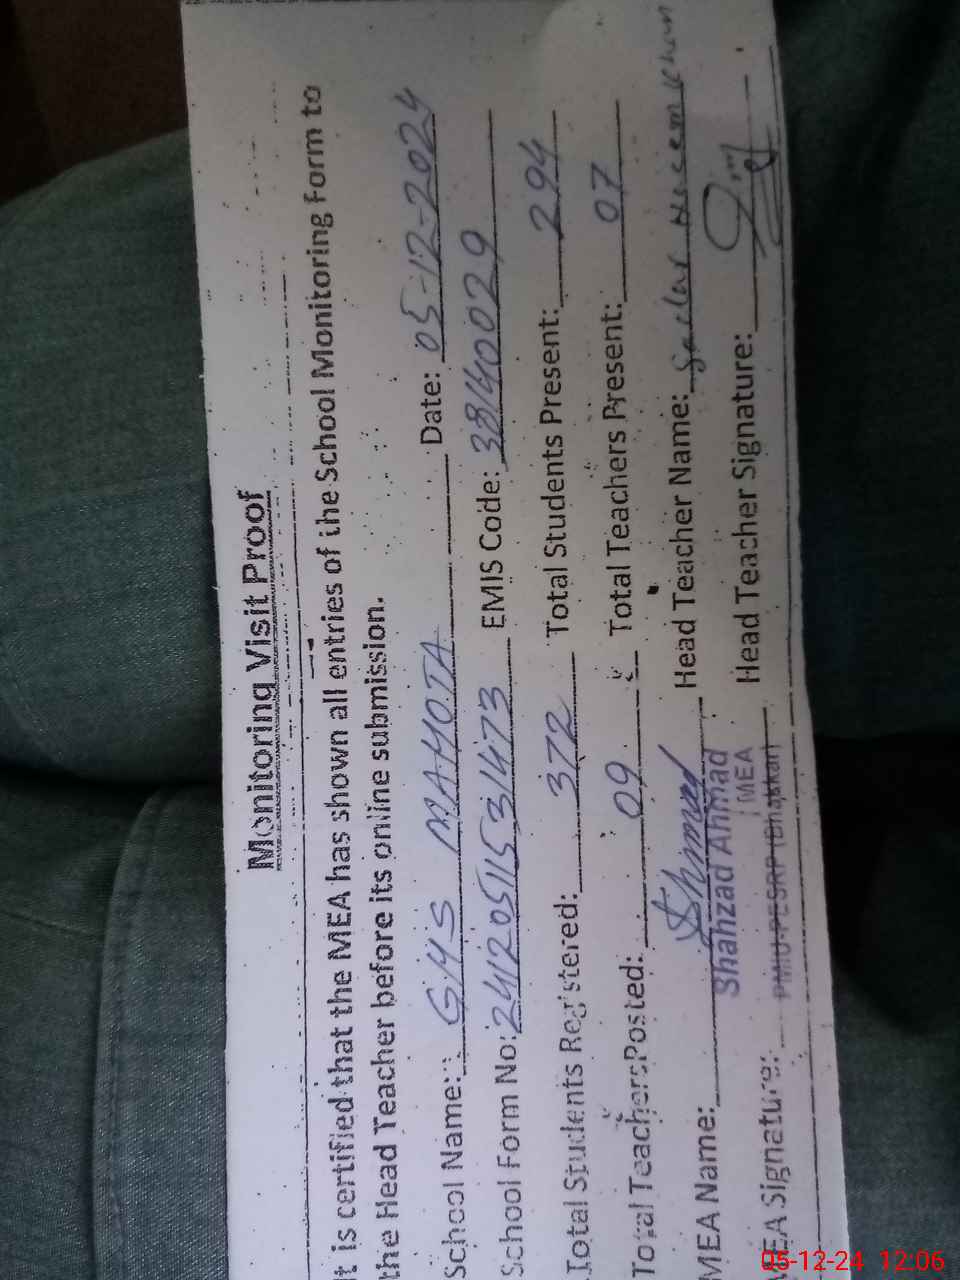 Monitoring Visit Proof
It is certified that the MEA has shown all entries of the School Monitoring Form to
the Head Teacher before its online submission.
School Name: GHS MAHOTA Date: 05-12-2024
School Form No: 24120511531473 EMIS Code: 38140029
Total Students Registered: 372 Total Students Present: 294
Total Teachers Posted: 09 Total Teachers Present: 07
MEA Name: Shahzad Ahmad Head Teacher Name:
MEA
MEA Signature: PMIU-PESRP (Bhakkar) Head Teacher Signature:
05-12-24 12:06